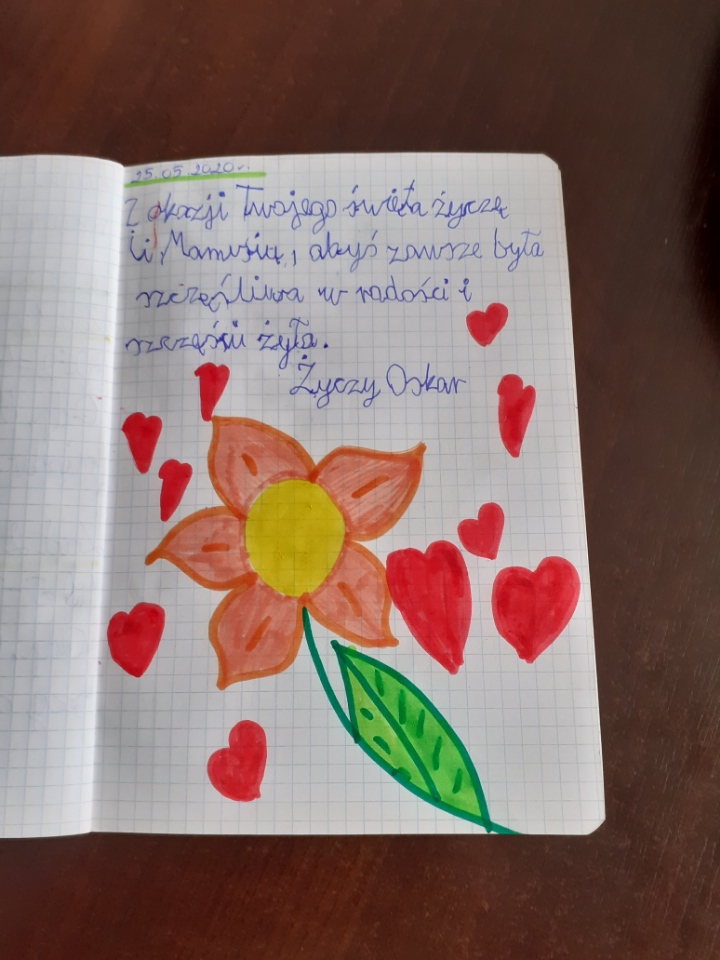 25.05.2020r.
Z okazji Twojego święta życzę
Ci, Mamusiu, abyś zawsze była
szczęśliwa w radości i
szczęściu żyła.
Życzy Oskar